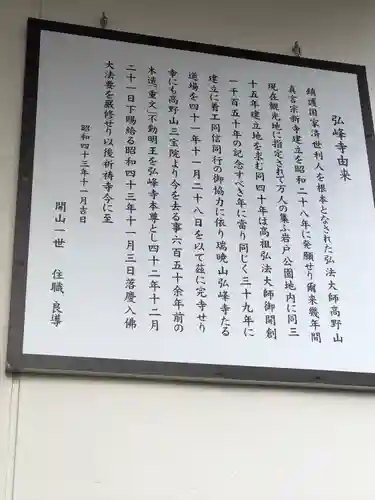 弘峰寺由来
鎮護国家済世利人を根本となされた弘法大師高野山
真言宗新寺建立を昭和二十八年に発願せり爾来幾年間
現在観光地に指定されて万人の集ふ岩戸公園地内に同三
十五年建立地を求む同四十年は高祖弘法大師御開創
一千百五十年の記念すべき年に當り同じく三十九年に
建立に着工同信同行の御協力に依り瑞暁山弘峰寺たる
道場を四十一年十一月二十八日を以て茲に完寺せり
幸にも高野山三宝院より今を去る事六百五十余年前の
木造「重文」不動明王を弘峰寺本尊とし四十二年十二月
二十一日下賜給る昭和四十三年十一月三日落慶入佛
大法要を厳修せり以後祈祷寺今に至
昭和四十三年十一月吉日
開山一世 住職 良導